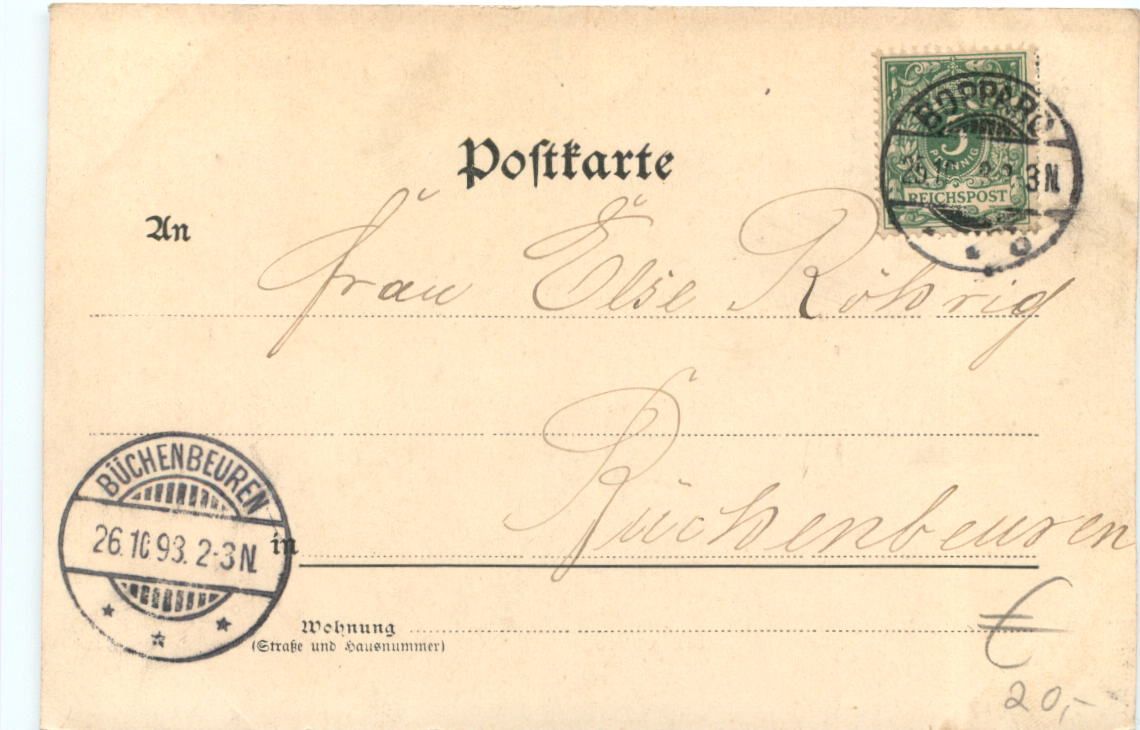 Postkarte
BOPPARD
5
PFENNIG
3 N
REICHSPOST
An
Frau Else Röhrig
Büchenbeuren
BÜCHENBEUREN
26.10 93. 2-3 N.
in
Wohnung
(Straße und Hausnummer)
€
20,-